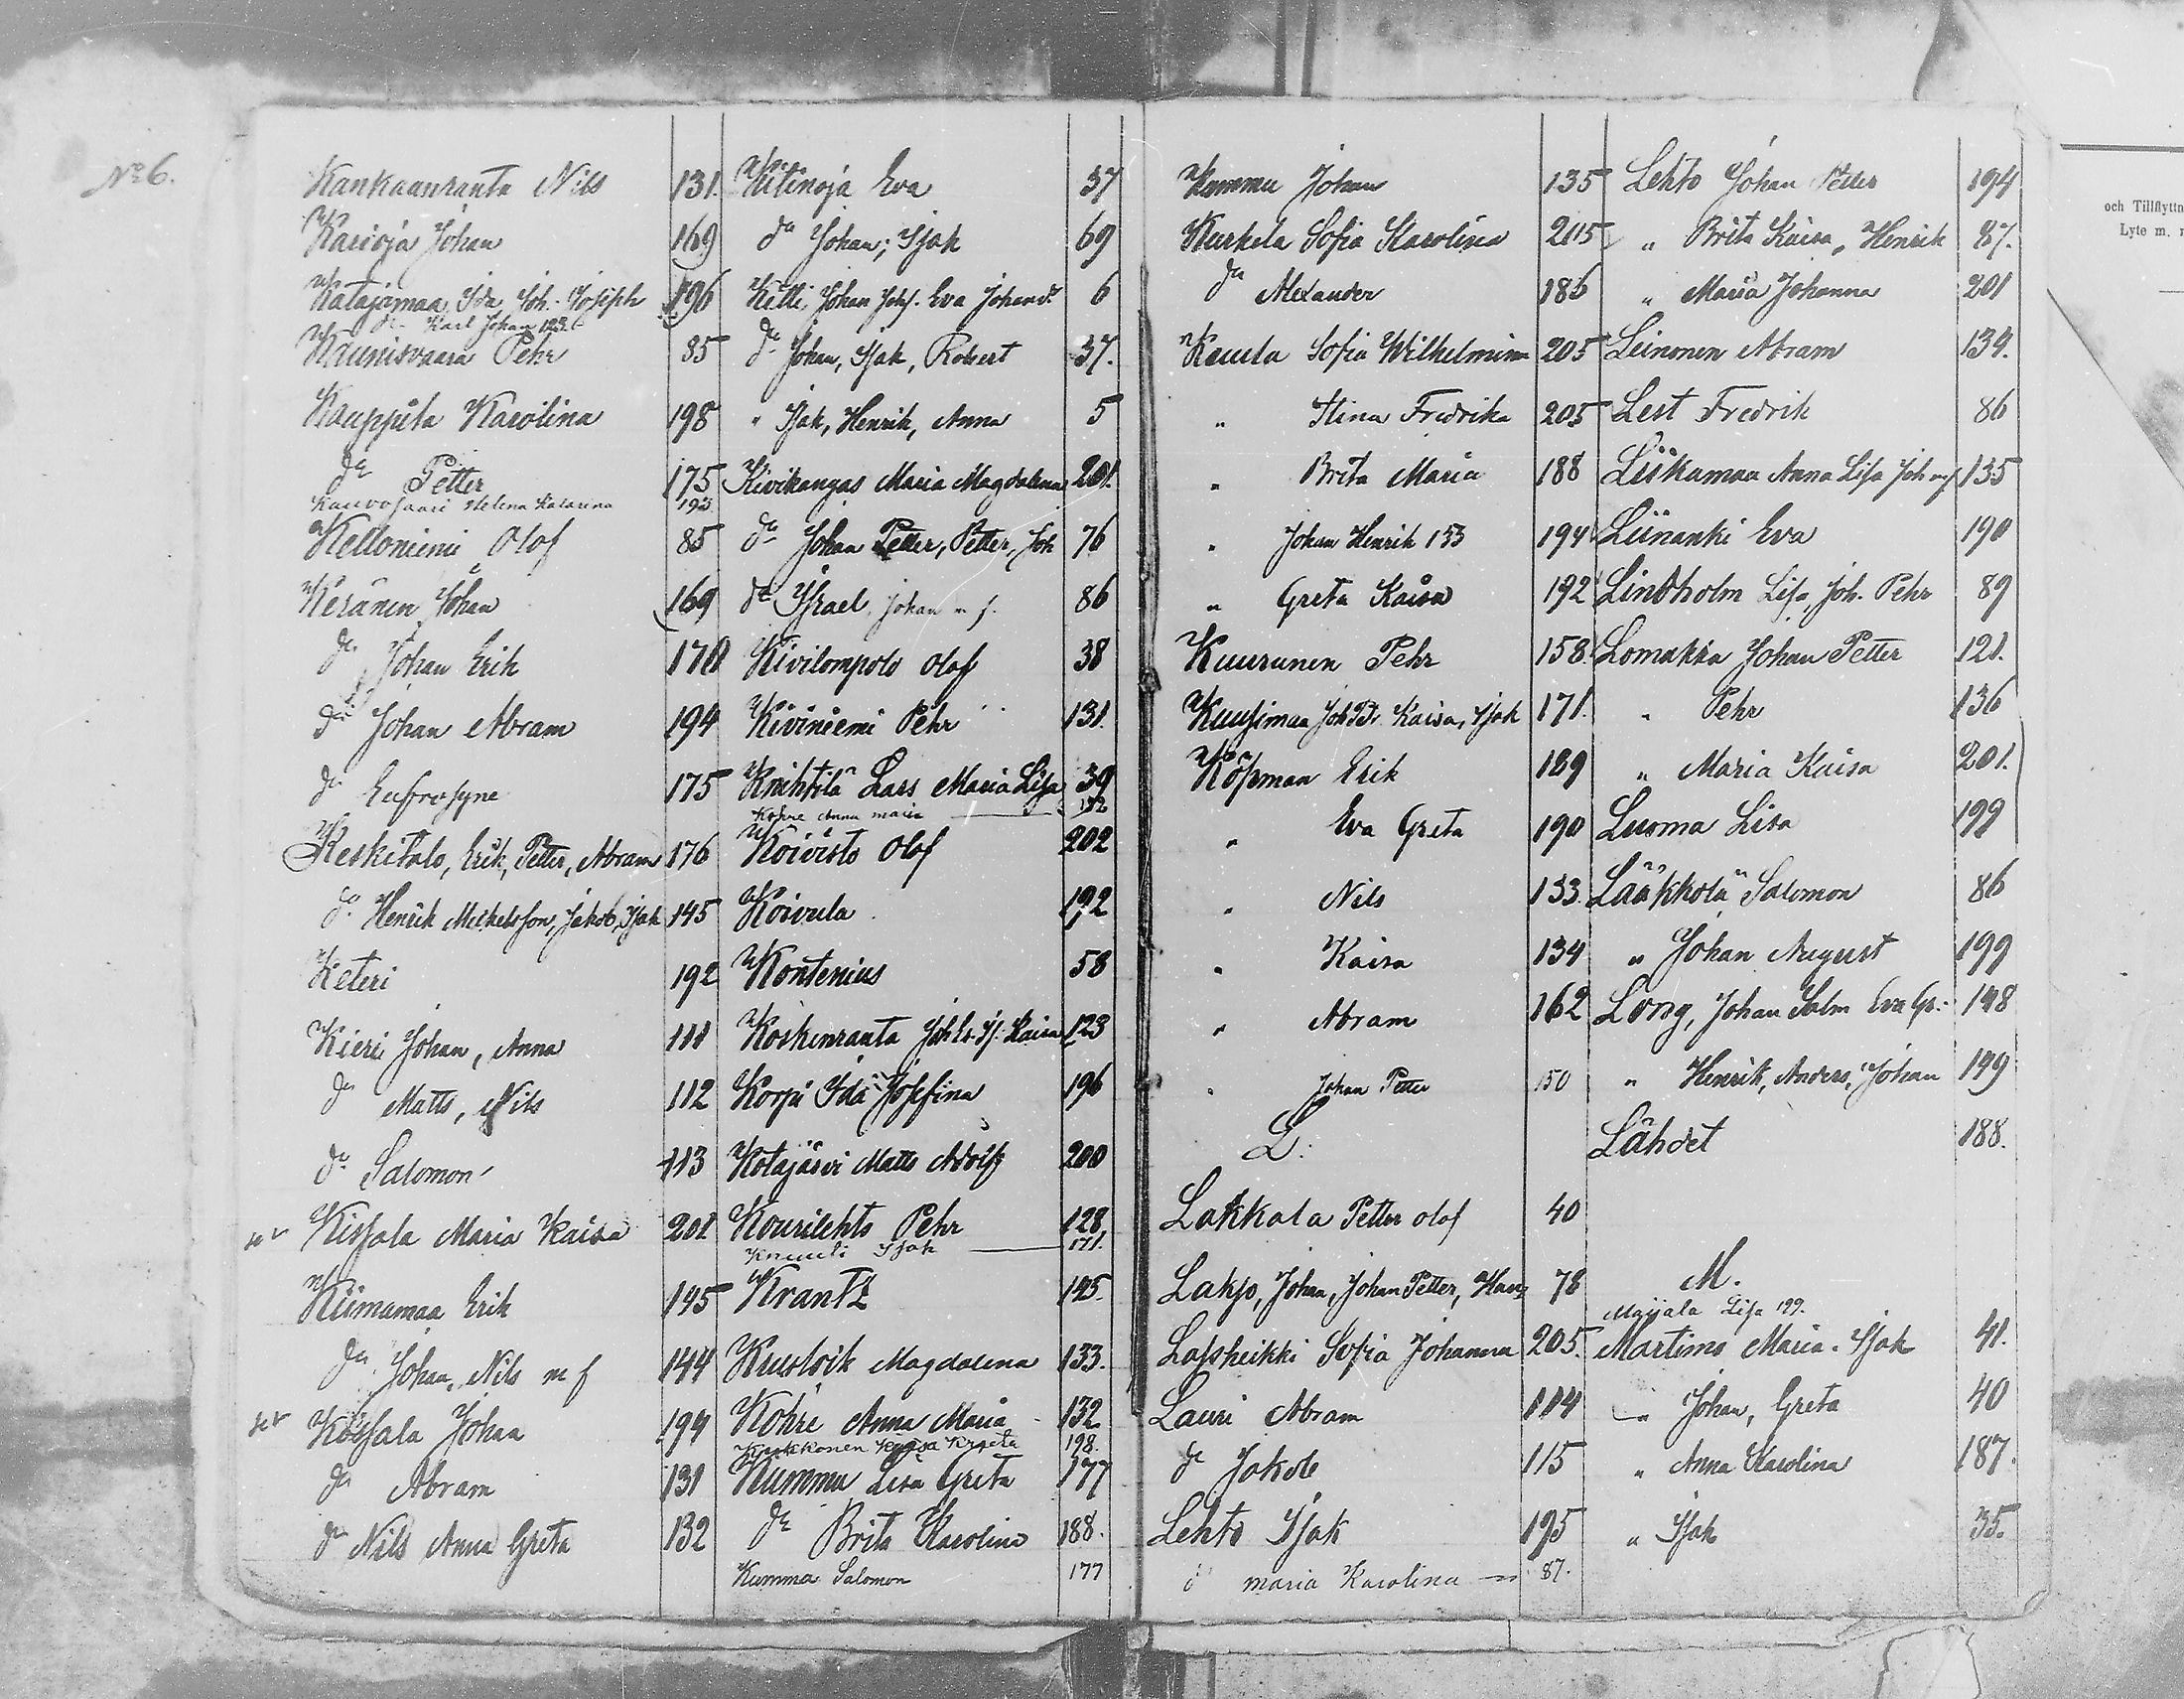 No 6.
Kankaanranta Nils 131.
Karioja Johan 169
Katajamaa, Ida, Joh. Joseph 196
do Karl Johan 123
Kaunisvaara Pehr 85
Kauppila Karolina 198
do Petter 175
Helena Katarina 193
Kelloniemi Olof 85
Keränen Johan 169
do Johan Erik 170
do Johan Abram 194
do Eufrosyne 175
Keskitalo, Erik, Petter, Abram 176
do Henrik Mickelsson, Jakob, Isak 145
Keteri 192
Kieri Johan, Anna 111
do Matts, Nils 112
do Salomon 113
Kissala Maria Kaisa 201
Kiimamaa Erik 145
do Johan, Nils m f 144
Johan 194
do Abram 131
do Nils Anna Greta 132
Kitinoja Eva 37
do Johan; Isak 69
Kitti, Johan Johs. Eva Johansd. 6
do Johan, Isak, Robert 37.
" Isak, Henrik, Anna 5
Kivikangas Maria Magdalena 201.
do Johan Petter, Petter, Joh 76
do Israel, Johan m f. 86
Kivilompolo Olof 38
Kiviniemi Pehr 131.
Knihtilä Lars Maria Lisa 39
Köhre Anna Maria 132
Koivisto Olof 202
Koivula 192
Kontenius 58
Koskenranta Joh Er. Is. Kaisa 123
Korpi Ida Josefina 196
Kotajärvi Matts Adolf 200
Kourilehto Pehr 128.
Knuuti Isak 171.
Krantz 145.
Krustvik Magdalena 133.
Köhre Anna Maria 132
Kukkonen Kajsa Kreeta 198.
Kummu Lisa Greta 177
do Brita Karolina 188.
Kummu Salomon 177
Kummu Johan 135
Kurkela Sofia Karolina 205
do Alexander 186
Kausta Sofia Wilhelmina 205
" Stina Fredrika 205
" Brita Maria 188
" Johan Henrik 133 194
" Greta Kaisa 192
Kuurunen Pehr 158.
Kuusimaa Joh Petr. Kaisa, Isak 171.
Köpman Erik 189
" Eva Greta 190
" Nils 133.
" Kaisa 134
" Abram 162
" Johan Petter 150
L:
Lakkala Petter Olof 40
Lakso, Johan, Johan Petter, Hans 78
Lassheikki Sofia Johanna 205.
Lauri Abram 114
do Jakob 115
Lehto Isak 195
do Maria Karolina 87.
Lehto Johan Petter 194
" Brita Kaisa, Henrik 87.
" Maria Johanna 201
Leinonen Abram 134.
Lest Fredrik 86
Liikamaa Anna Lisa Joh m f 135
Liinanki Eva 190
Lindholm Lisa, Joh. Pehr 89
Lomakka Johan Petter 121.
" Pehr 136
" Maria Kaisa 201.
Luoma Lisa 199
Lääkkölä Salomon 86
" Johan August 199
Löng, Johan Salm Eva Gr. 148
" Henrik, Anders, Johan 149
Lähdet 188.
M.
Majjala Lisa 199.
Martimo Maria. Isak 41.
" Johan, Greta 40
" Anna Karolina 187.
" Isak 35.
och Tillflyttn
Lyte m. m